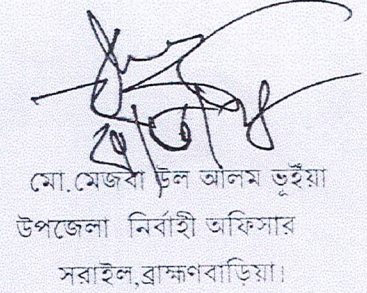 মো.মেজবা উল আলম ভূইঁয়া
উপজেলা নির্বাহী অফিসার
সরাইল,ব্রাহ্মণবাড়িয়া।